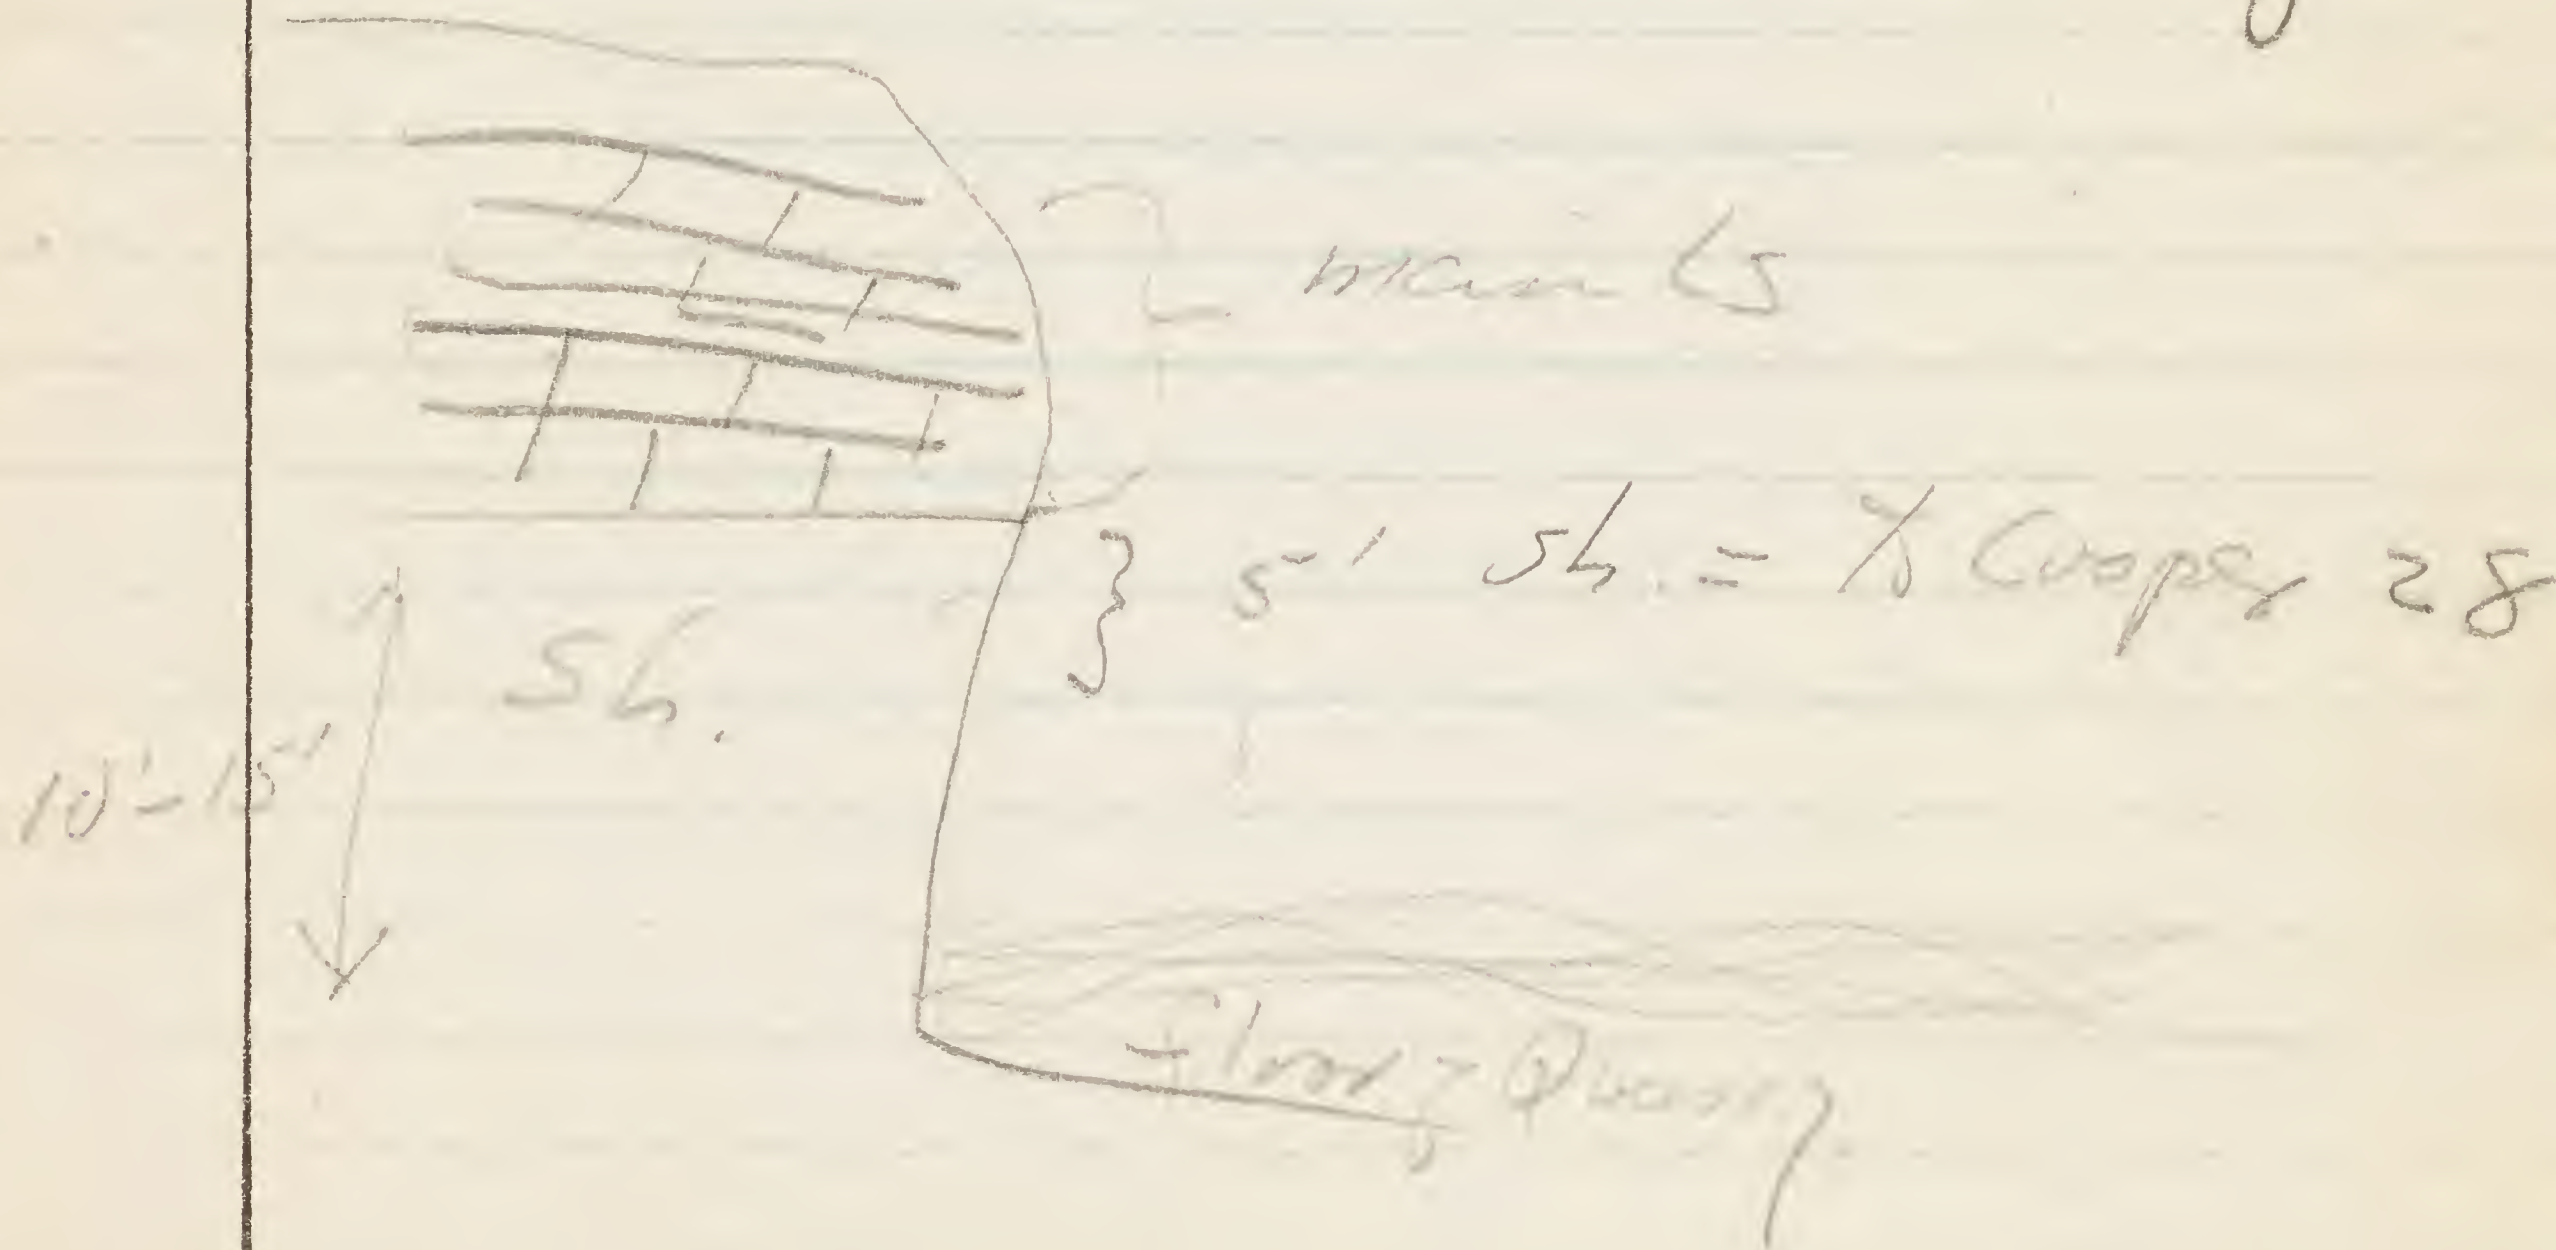 main Ls
5' Sh. = Cooper 28
Sh.
10'-15'
Floor of Quarry